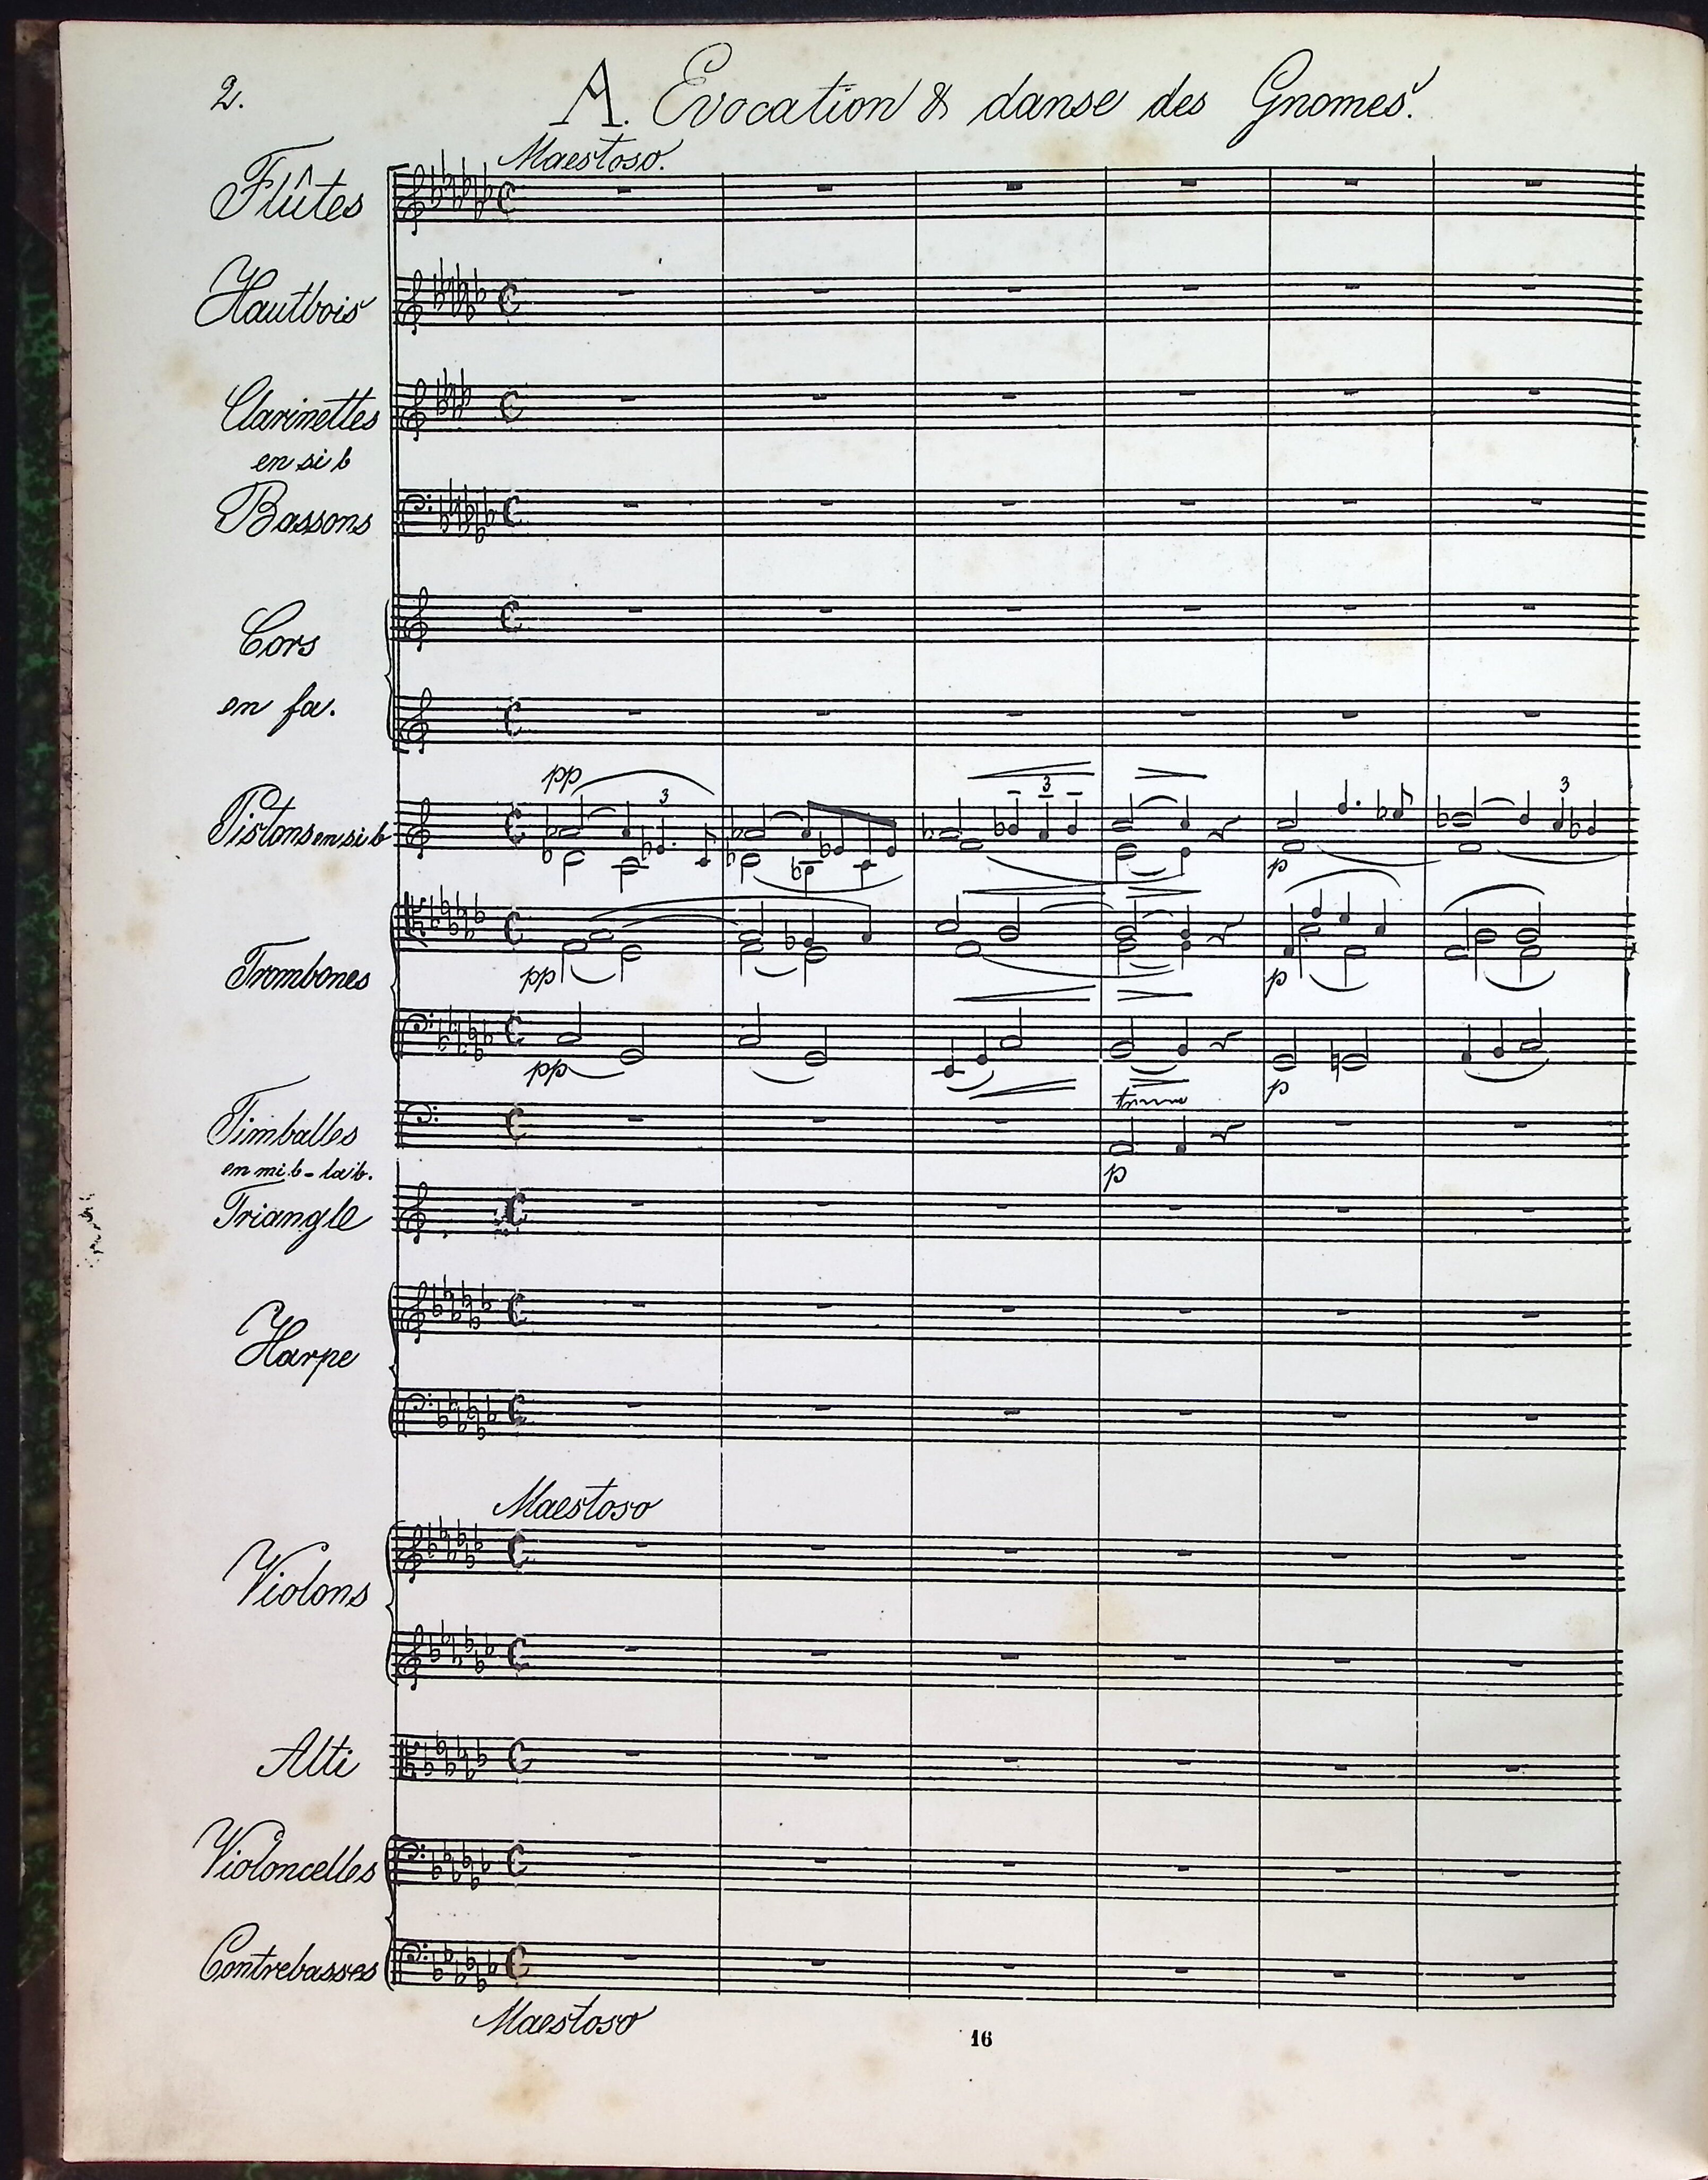 2.
A. Evocation & danse des Gnomes.
Maestoso.
Flûtes
Hautbois
Clarinettes
en si b
Bassons
Cors
en fa.
pp
3
3
3
Pistons en si b
p
Trombones
pp
p
pp
p
Timballes
en mi b - la b.
tr
p
Triangle
Harpe
Maestoso
Violons
Alti
Violoncelles
Contrebasses
Maestoso
16